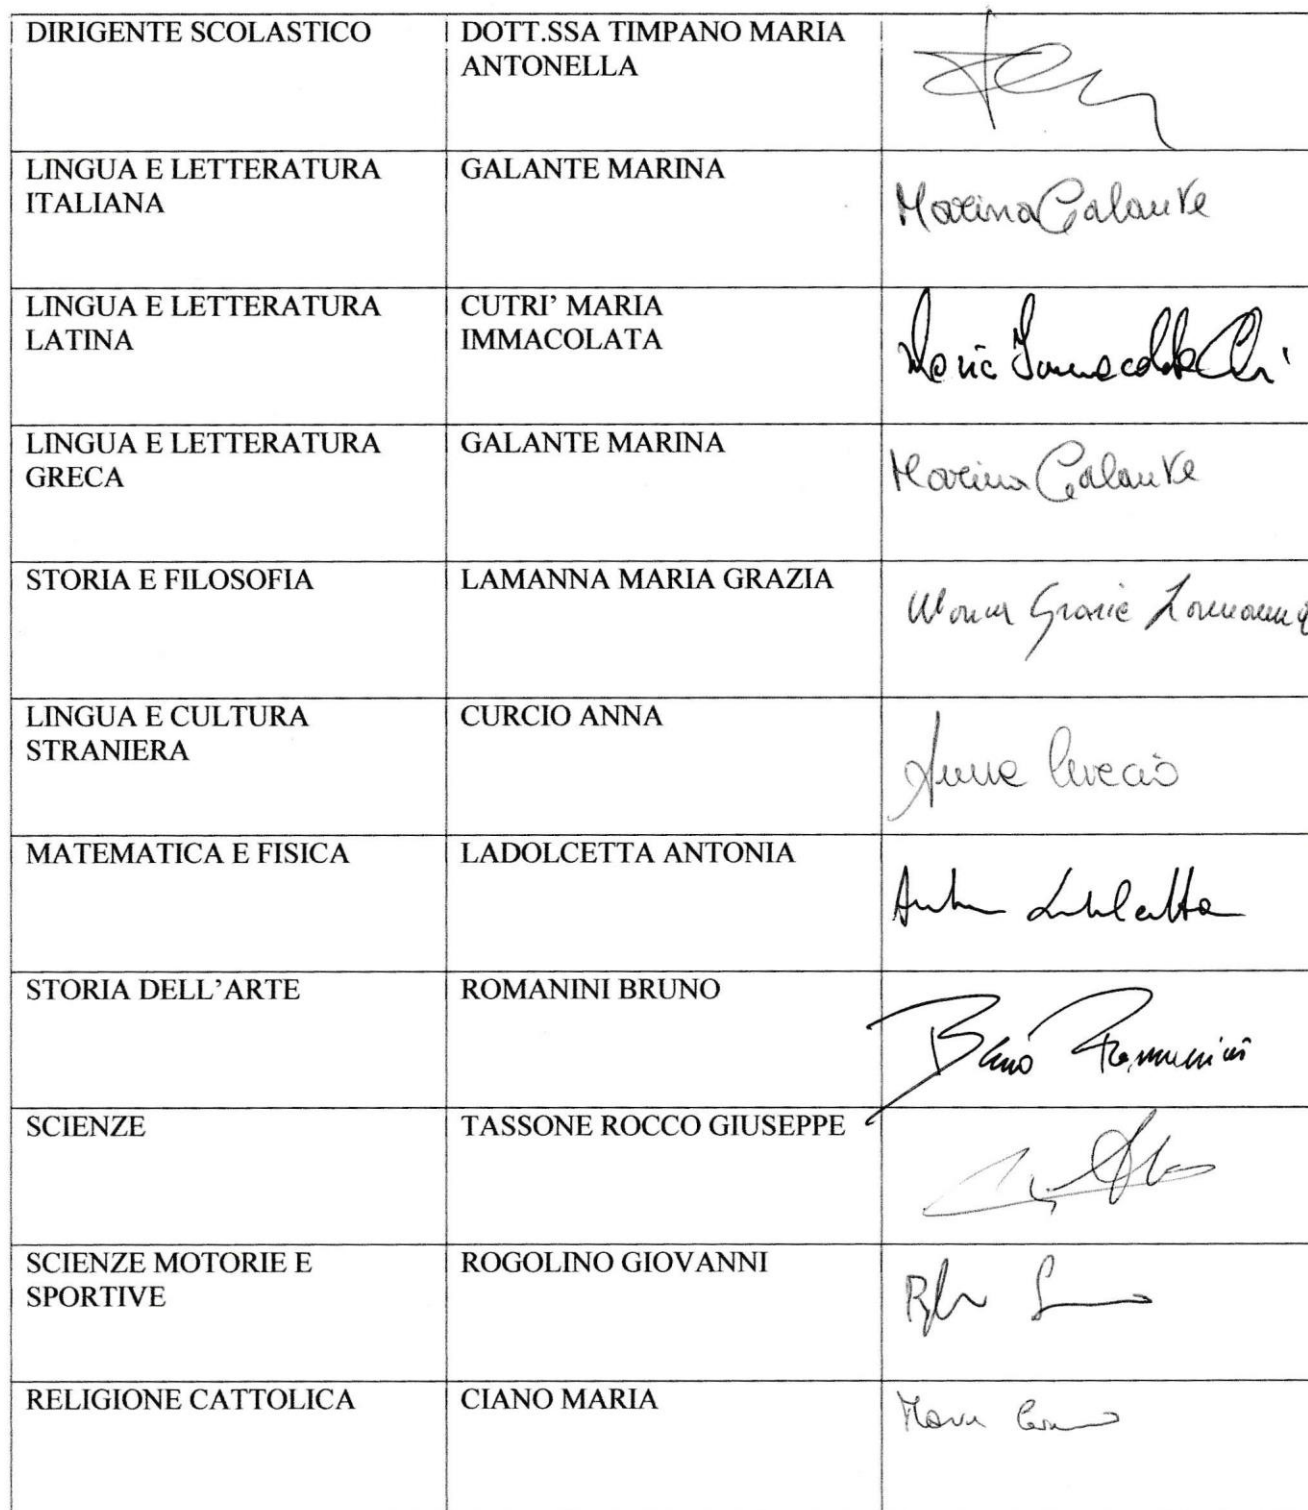 DIRIGENTE SCOLASTICO
DOTT.SSA TIMPANO MARIA
ANTONELLA
LINGUA E LETTERATURA
ITALIANA
GALANTE MARINA
Marina Galante
LINGUA E LETTERATURA
LATINA
CUTRI’ MARIA
IMMACOLATA
Maria Immacolata
LINGUA E LETTERATURA
GRECA
GALANTE MARINA
Marina Galante
STORIA E FILOSOFIA
LAMANNA MARIA GRAZIA
Maria Grazia Lamanna
LINGUA E CULTURA
STRANIERA
CURCIO ANNA
Anna Curcio
MATEMATICA E FISICA
LADOLCETTA ANTONIA
STORIA DELL’ARTE
ROMANINI BRUNO
Bruno Romanini
SCIENZE
TASSONE ROCCO GIUSEPPE
SCIENZE MOTORIE E
SPORTIVE
ROGOLINO GIOVANNI
RELIGIONE CATTOLICA
CIANO MARIA
Maria